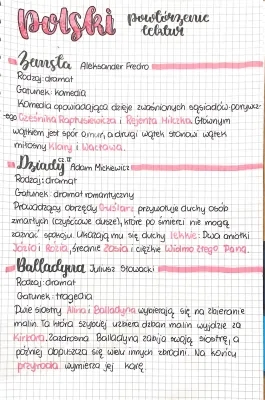 polski powtórzenie
lektur
Zemsta Aleksander Fredro
Rodzaj: dramat
Gatunek: komedia
Komedia opowiadająca dzieje zwaśnionych sąsiadów-porywcz-
ego Cześnika Raptusiewicza i Rejenta Milczka. Głównym
wątkiem jest spór o mur, a drugi wątek stanowi wątek
miłosny Klary i Wacława.
Dziady cz. II Adam Mickiewicz
Rodzaj: dramat
Gatunek: dramat romantyczny
Prowadzący obrzędy Guślarz przywołuje duchy osób
zmarłych (czyśćcowe dusze), które po śmierci nie mogą
zaznać spokoju. Ukazują mu się duchy lekkie: Dwa aniołki
Józio i Rózia, średnie Zosia i ciężkie Widmo Złego Pana.
Balladyna Juliusz Słowacki
Rodzaj: dramat
Gatunek: tragedia
Dwie siostry Alina i Balladyna wybierają się na zbieranie
malin. Ta która szybciej uzbiera dzban malin wyjdzie za
Kirkora. Zazdrosna Balladyna zabija swoją siostrę, a
później dopuszcza się wielu innych zbrodni. Na końcu
przyroda wymierza jej karę